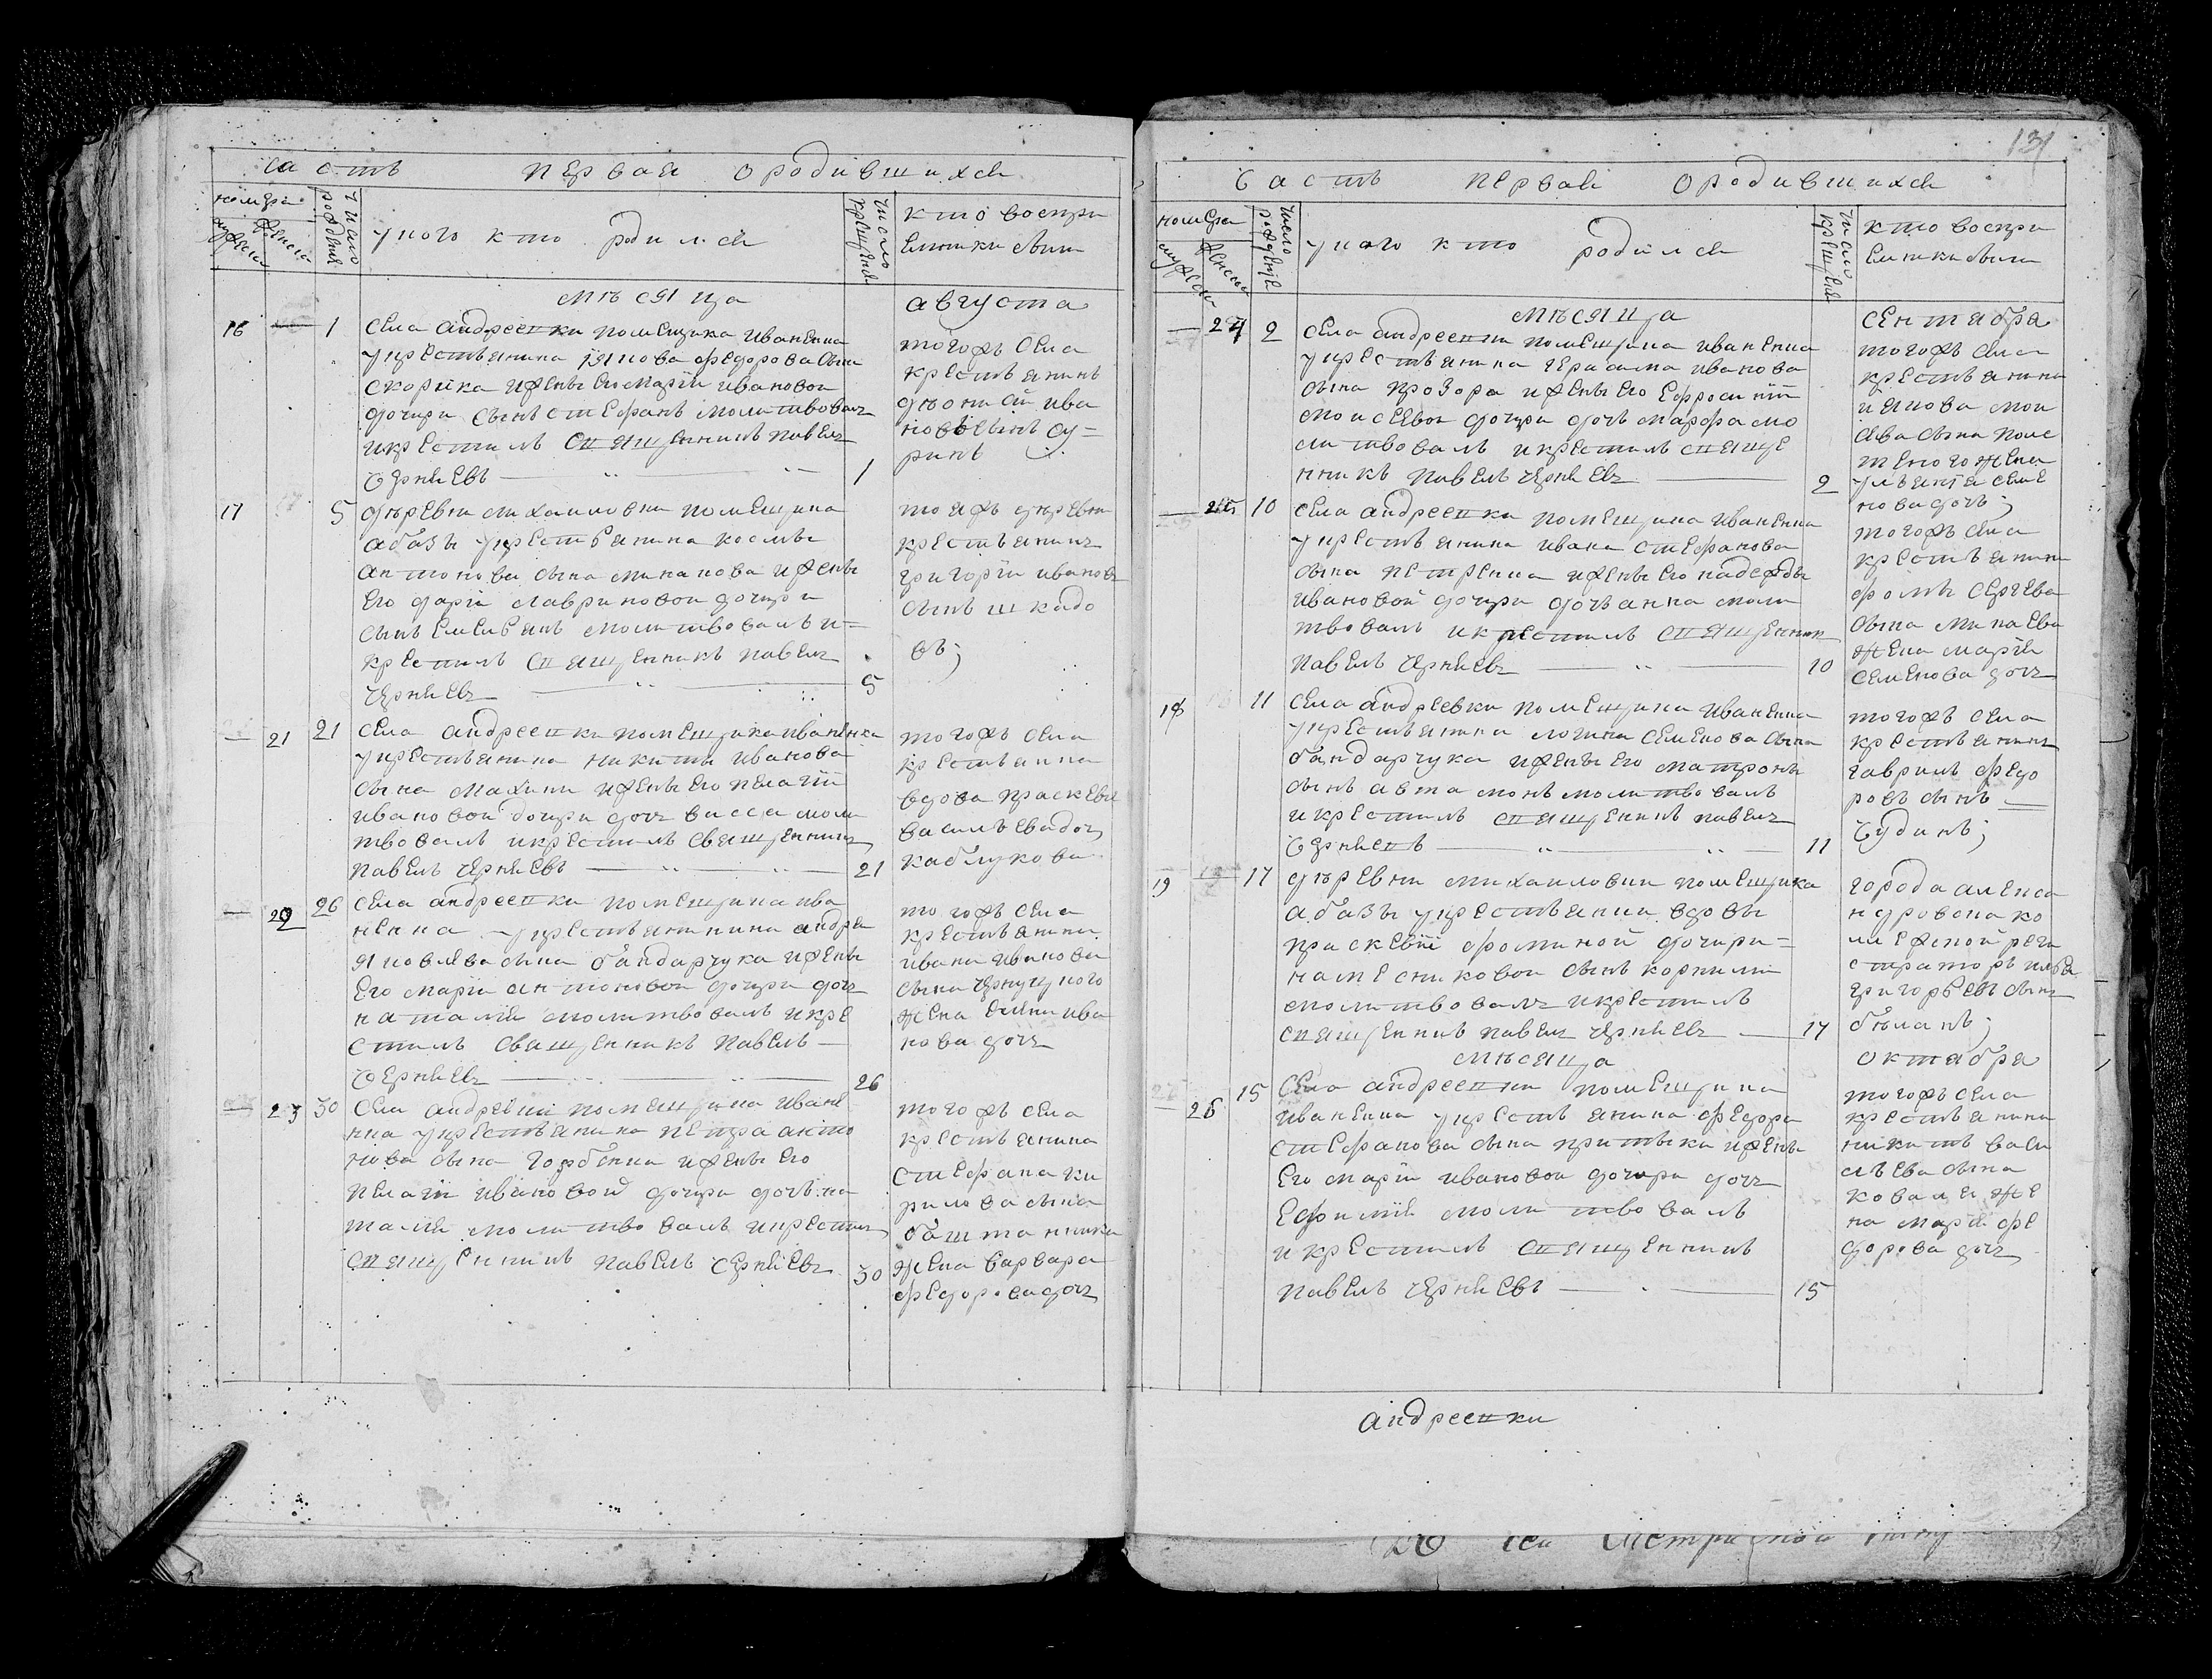 часть первая о родившихся
номера
мужеска
женска
число рождения
у кого кто родился
число крещения
кто воспри
емники были
месяца
августа
16 1 села андреевки помещика иваненка
у крестьянина якова федорова сына
скорика и жены его марии ивановой
дочери сынъ стефанъ молитвовалъ
и крестилъ священникъ павелъ
черняевъ 1
тогожъ села
крестьянинъ
дионисий ива
новъ сынъ су=
ринъ
17 5 деревни михаиловки помещика
абазы у крестьянина космы
антонова сына минакова и жены
его дарии лавриновой дочери
сынъ емельянъ молитвовалъ и=
крестилъ священникъ павелъ
черняевъ 5
тояжъ деревни
крестьянинъ
григорий ивановъ
сынъ шкадо
въ;
21 21 села андреевки помещика иваненка
у крестьянина никиты иванова
сына махини и жены его пелагии
ивановой дочери дочь васса моли
твовалъ и крестилъ священникъ
павелъ черняевъ 21
тогожъ села
крестьянка
вдова праскевия
васильева дочь
каблукова
22 26 села андреевки помещика ива
ненка у крестьянинина андрея
яковлева сына бандарчука и жены
его марии антоновой дочери дочь
наталия молитвовалъ и кре
стилъ священникъ павелъ
черняевъ 26
тогожъ села
крестьянина
ивана иванова
сына
жена ива
нова дочь
23 30 села андреевки помещика иване
нка у крестьянина петра анто
нова сына горбенка и жены его
пелагии ивановой дочери дочь на
талия молитвовалъ и крестилъ
священникъ павелъ черняевъ 30
тогожъ села
крестьянина
стефана ки
рилова сына
баштанника
жена варвара
федорова дочь
131
часть первая о родившихся
номера
мужеска
женска
число рождения
у кого кто родился
число крещения
кто воспри
емники были
месяца
сентября
24 2 села андреевки помещика иваненка
у крестьянина герасима иванова
сына прозора и жены его ефросинии
моисеевой дочери дочь марфа мо
литвовалъ и крестилъ свяще
нникъ павелъ черняевъ 2
тогожъ села
крестьянина
иякова мои
сеева сына
жена
ульяния семе
нова дочь;
25 10 села андреевки помещика иваненка
у крестьянина ивана стефанова
сына петренка и жены его надежды
ивановой дочери дочь анна моли
твовалъ и крестилъ священник
павелъ черняевъ 10
тогожъ села
крестьянина
фомы сергеева
сына минаева
жена мария
семенова дочь
18 11 села андреевки помещика иваненка
у крестьянина логина семенова сына
бандарчука и жены его матроны
сынъ автамонъ молитвовалъ
и крестилъ священникъ павелъ
черняевъ 11
тогожъ села
крестьянинъ
гаврилъ федо
ровъ сынъ
чудинъ;
19 17 деревни михаиловки помещика
абазы у крестьянки вдовы
праскевии фоминой дочери=
наместниковой сынъ корнилий
молитвовалъ и крестилъ
священникъ павелъ черняевъ 17
города алекса
ндровска ко
лежской реги
стратор илья
григорьевъ сынъ
беланъ;
месяца
октября
26 15 села андреевки помещика
иваненка у крестьянина федора
стефанова сына притыки и жены
его марии ивановой дочери дочь
ефимия молитвовалъ
и крестилъ священникъ
павелъ черняевъ 15
тогожъ села
крестьянина
никиты васи
льева сына
коваля же
на мария фе
дорова дочь
андреевки